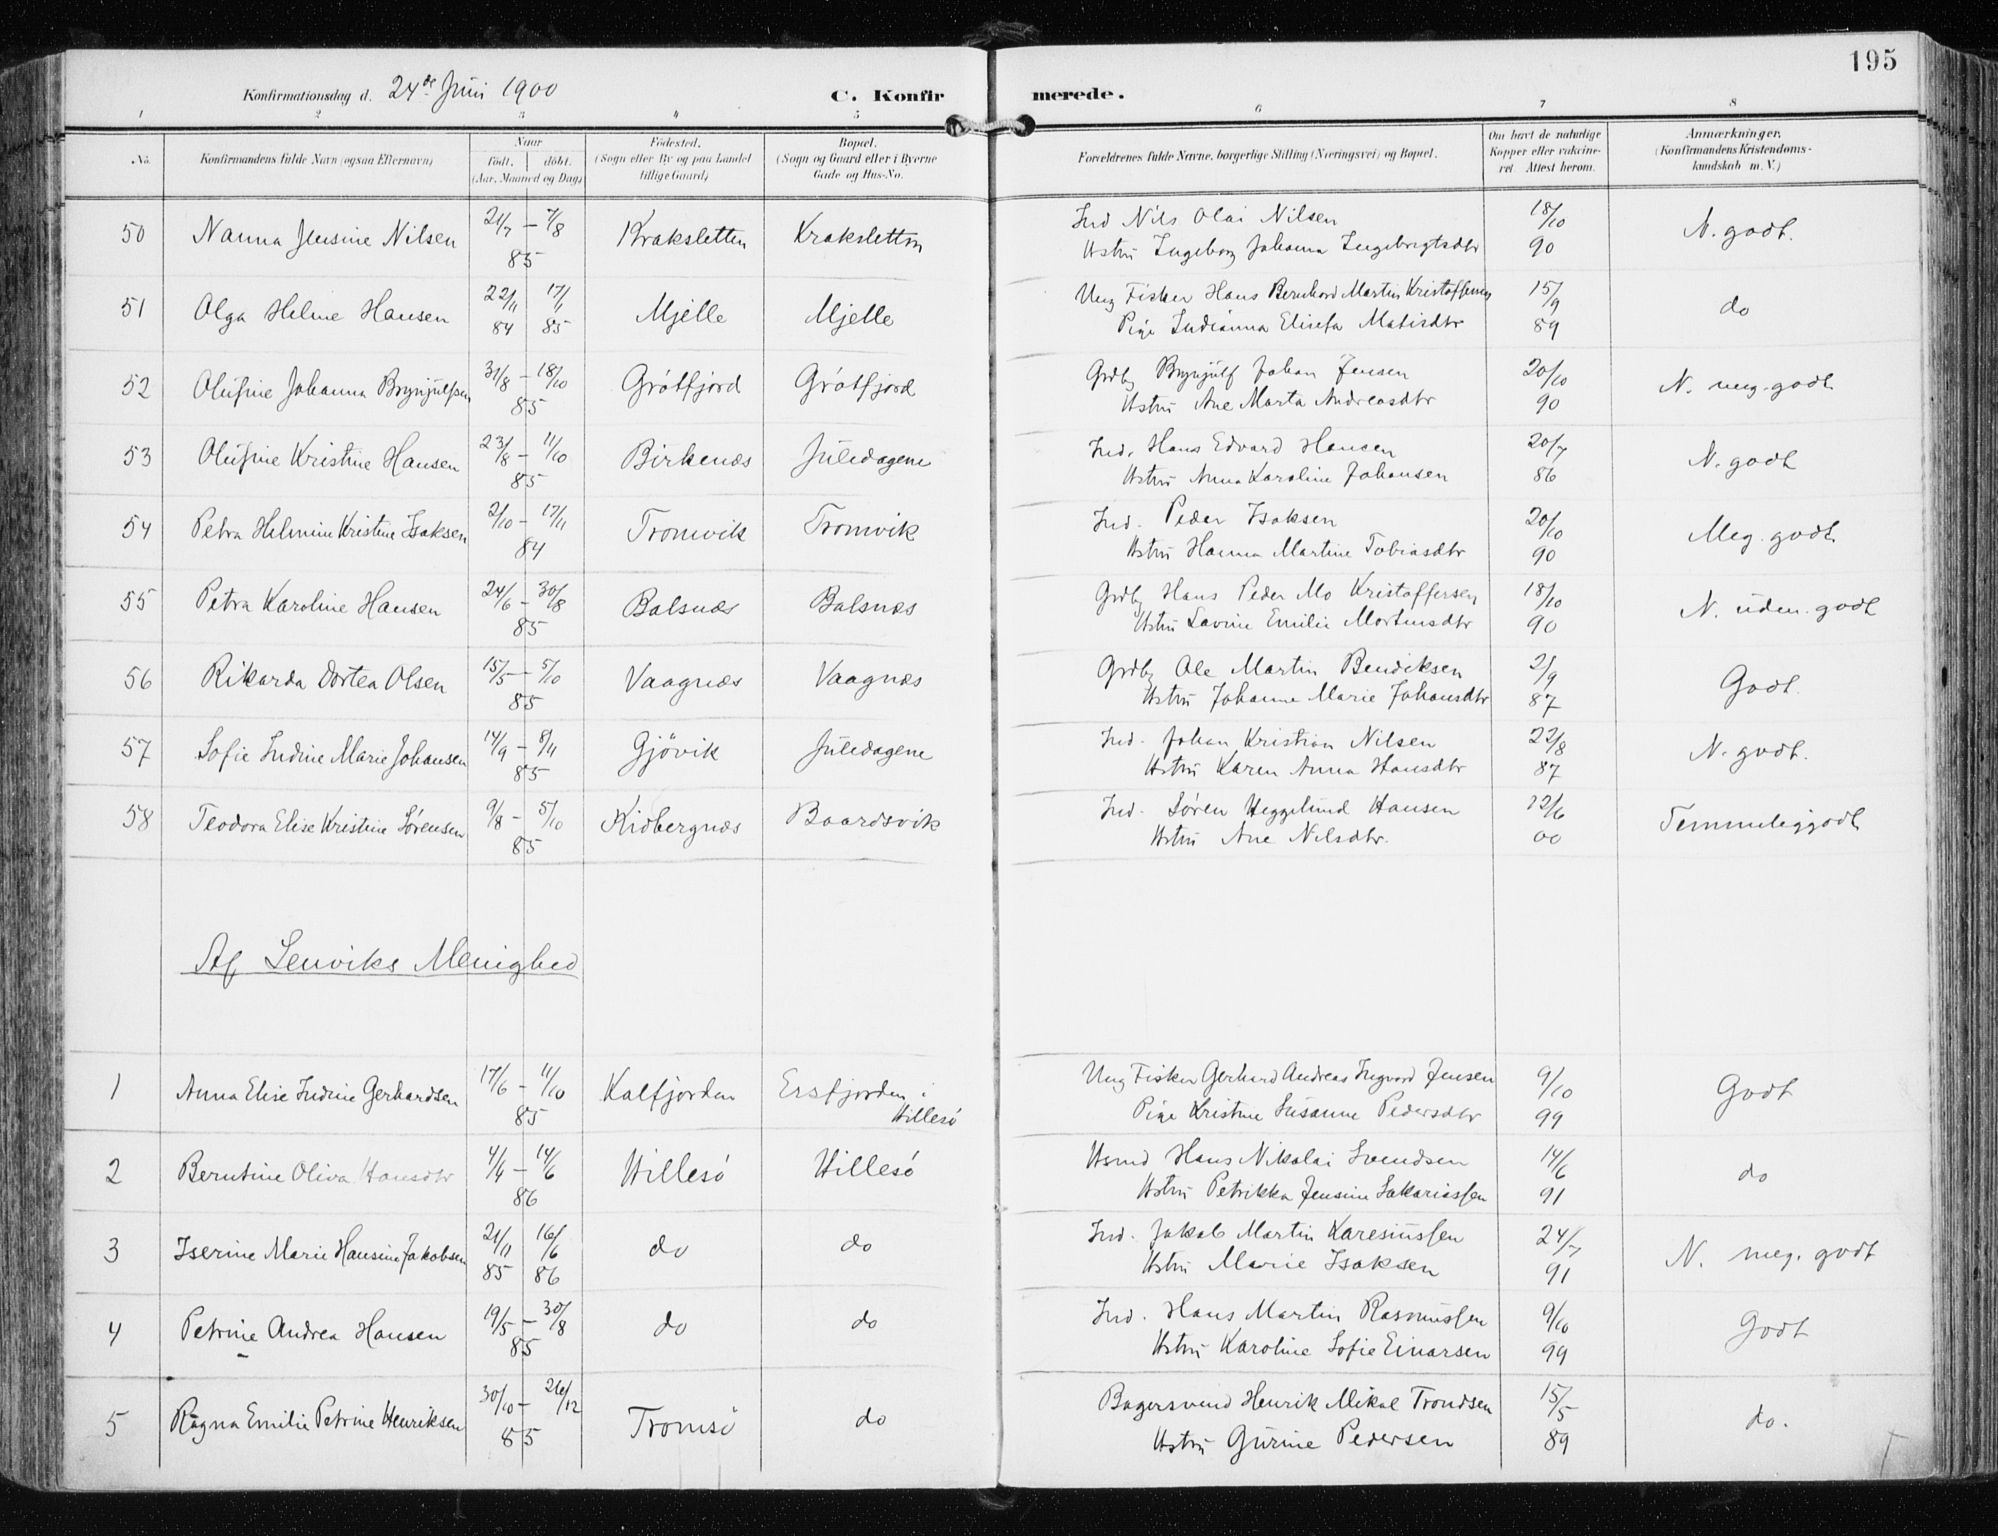 195
Konfirmationsdag d. 24de Juni 1900 C. Konfirmerede.
1 2 3 4 5 6 7 8
No. Konfirmandens fulde Navn (ogsaa Efternavn) Naar født, døbt. (Aar, Maaned og Dag) Fødested. (Sogn eller By og paa Landet tillige Gaard) Bopæl. (Sogn og Gaard eller i Byerne Gade og Hus-No. Forældrenes fulde Navne, borgerlige Stilling (Næringsvei) og Bopæl. Om havt de naturlige Kopper eller vakcineret. Attest herom. Anmærkninger. (Konfirmandens Kristendomskundskab m. V.)
50 Nanna Jensine Nilsen 21/7 – 7/8 85 Kraksletten Kraksletten Ind Nils Olai Nilsen 18/10 90 N. godt.
Hstru Ingeborg Johanna Ingebrigtsdtr
51 Olga Helene Hansen 22/11 84 17/1 85 Mjelle Mjelle Ung Fisker Hans Bernhard Martin Kristoffersen 15/9 89 do
Pige Indianna Elisefa Matisdtr
52 Olufine Johanna Brynjulfsen 31/8 – 18/10 85 Grøtfjord Grøtfjord Grdb Brynjulf Johan Jensen 20/10 90 N. meg. godt.
Hstru Ane Marta Andreasdtr
53 Olufine Kristine Hansen 23/8 – 11/10 85 Birkenæs Juledagene Ind. Hans Edvard Hansen 20/7 86 N. godt
Hstru Anna Karoline Johansen
54 Petra Helmine Kristine Isaksen 2/10 – 17/11 84 Tromvik Tromvik Ind. Peder Isaksen 20/10 90 Meg. godt.
Hstru Hanna Martine Tobiasdtr
55 Petra Karoline Hansen 24/6 – 30/8 85 Balsnæs Balsnæs Grdb Hans Peder Mo Kristoffersen 18/10 90 N. uden. godt
Hstru Lavine Emilie Mortensdtr
56 Rikarda Dortea Olsen 15/5 – 5/10 85 Vaagnæs Vaagnæs Grdb Ole Martin Bendiksen 2/9 87 Godt.
Hstru Johanne Marie Johansdtr
57 Sofie Indine Marie Johansen 14/9 – 8/11 85 Gjøvik Juledagene Ind. Johan Kristian Nilsen 22/8 87 N. godt.
Hstru Karen Anna Hansdtr
58 Teodora Elise Kristine Sørensen 9/8 – 5/10 85 Kidbergnæs Baardsvik Ind. Søren Heggelund Hansen 12/6 00 Temmeliggodt
Hstru Ane Nilsdtr.
Af Lenviks Menighed
1 Anna Elise Indine Gerhardsen 17/6 – 11/10 85 Kalfjorden Ersfjorden i Hillesø Ung Fisker Gerhard Andreas Ingvard Jensen 9/10 99 Godt
Pige Kristine Susanne Pedersdtr
2 Berntine Oliva Hansdtr 4/4 – 14/6 86 Hillesø Hillesø Hsmd Hans Nikolai Svendsen 14/6 91 do
Hstru Petrikka Jensine Sakariassen
3 Iserine Marie Hansine Jakobsen 21/11 85 16/6 86 do do Ind. Jakob Martin Karesiussen 24/7 91 N. meg. godt
Hstru Marie Isaksen
4 Petrine Andrea Hansen 19/5 – 30/8 85 do do Ind. Hans Martin Rasmussen 9/10 99 Godt
Hstru Karoline Sofie Einarsen
5 Ragna Emilie Petrine Henriksen 30/10 – 26/12 85 Tromsø do Bagersvend Henrik Mikal Trondsen 15/5 89 do.
Hstru Gurine Pedersen